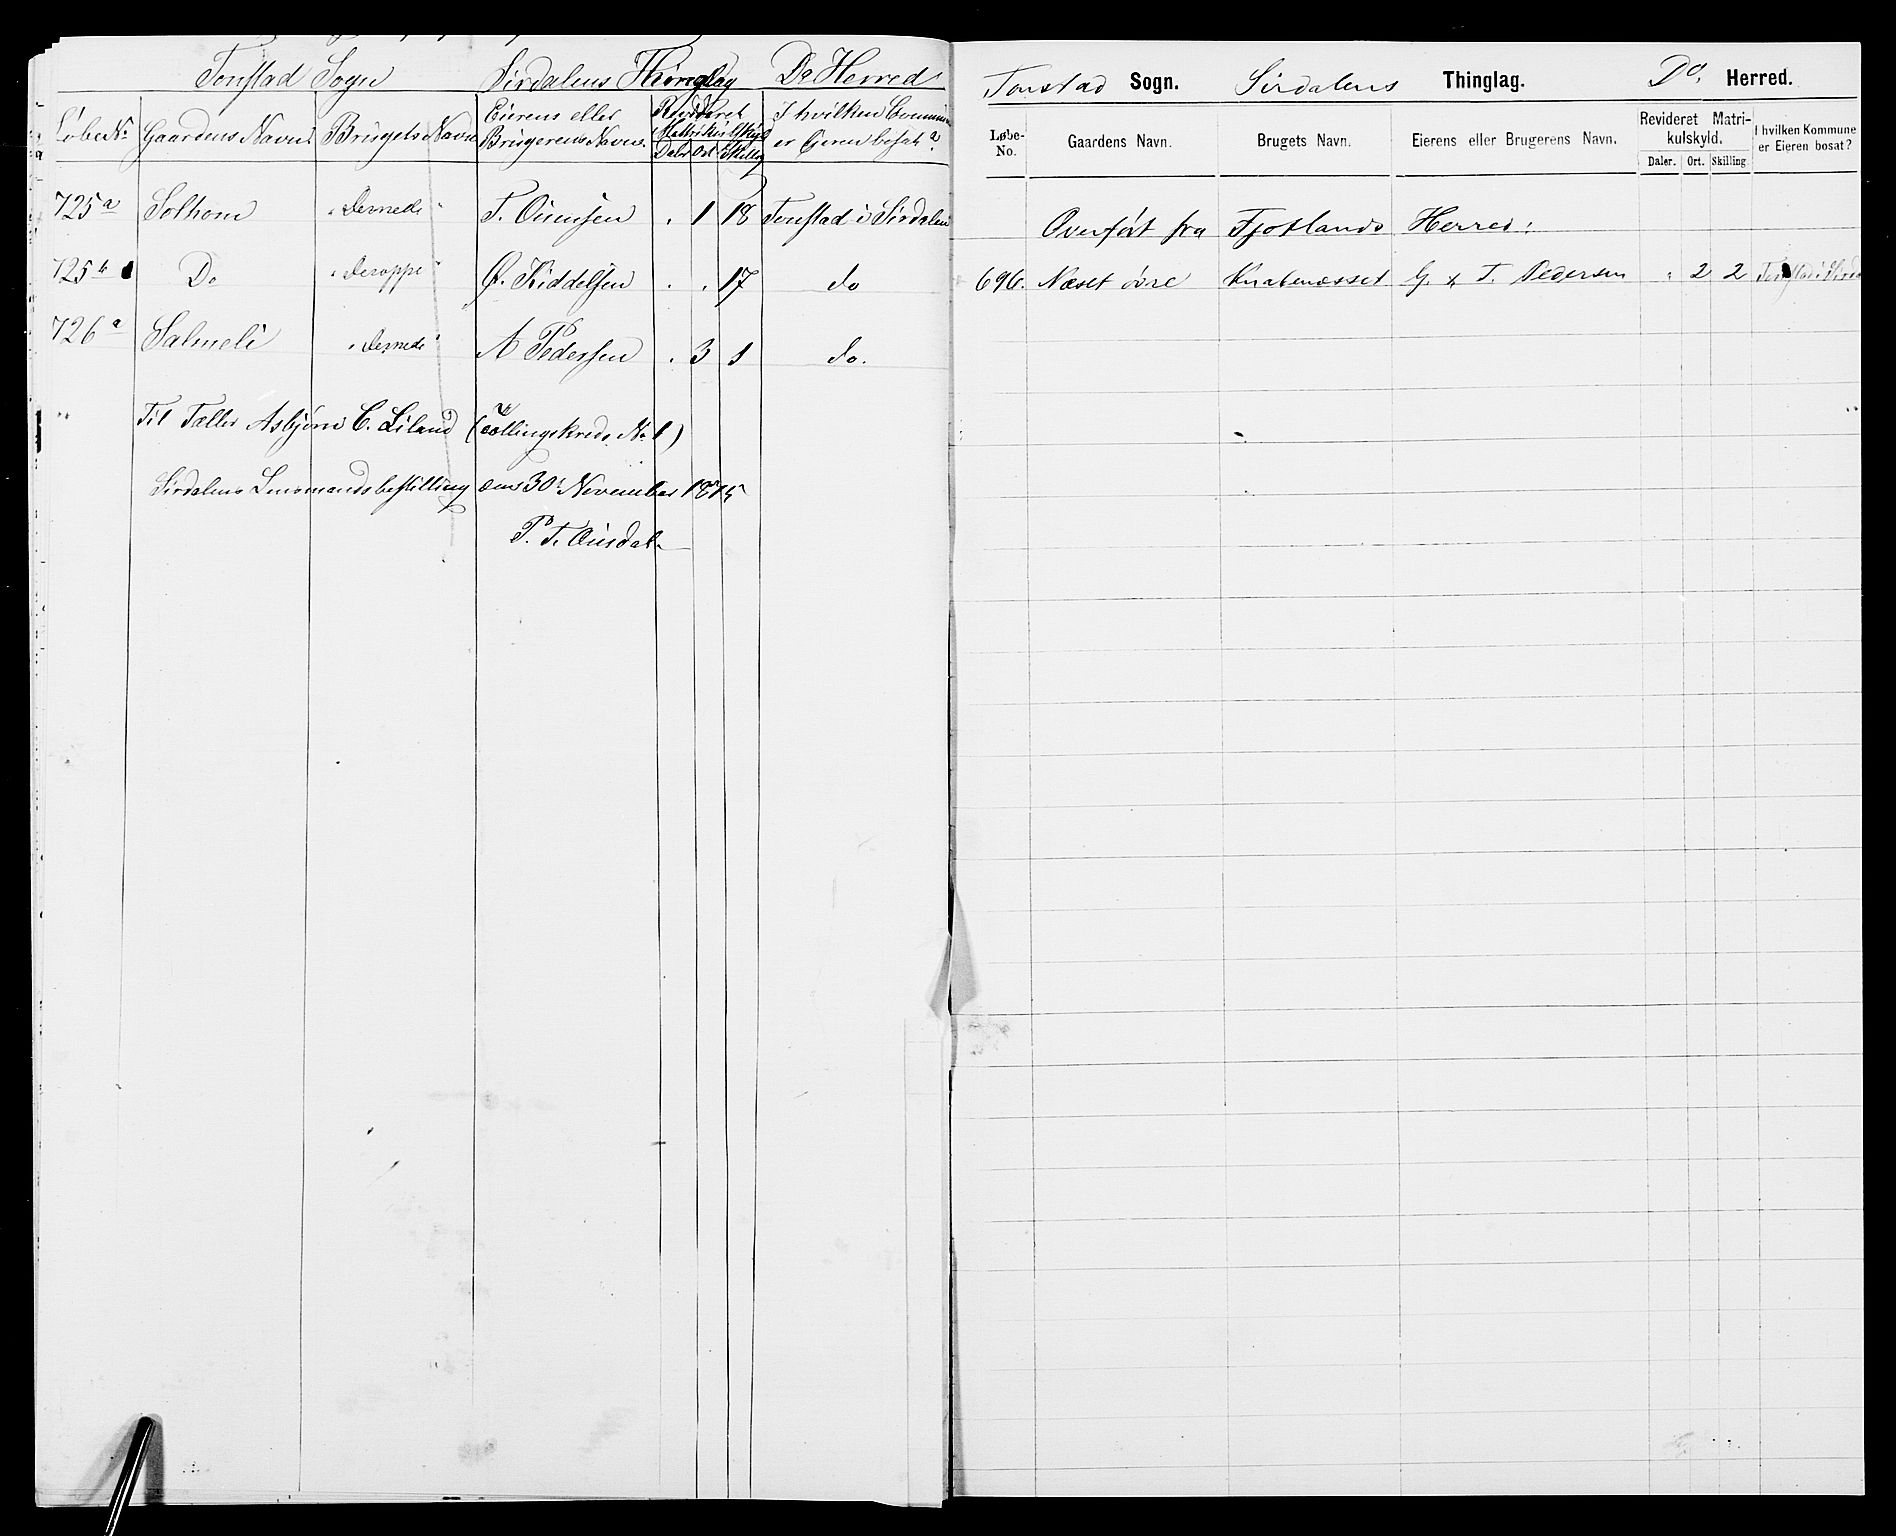 Tonstad Sogn Sirdalens Thinglag Do Herred
LøbeNo Gaardens Navn Brugets Navn Eierens eller Brugerens Navn. Revideret Matrikulskyld Daler Ort Skilling I hvilken Commune er Eieren bosat?
725a Solhom "Dernede" T. Ouensen . 1 18 Tonstad i Sirdalen
725b Do "Deroppe" Ø. Kiddelsen . . 17 do
726a Salmeli "Dernede" A Pedersen . 3 1 do.
Til Tæller Asbjørn C. Liland (Tællingskreds No 1)
Sirdalens Lensmandsbestilling den 30 November 1875
P. T. Ousdal
Tonstad Sogn. Sirdalens Thinglag. Do. Herred.
Løbe-No. Gaardens Navn. Brugets Navn. Eierens eller Brugerens Navn. Revideret Matrikulskyld. Daler. Ort. Skilling. I hvilken Kommune er Eieren bosat?
Overført fra Fjotlands Herred:
696. Næset øvre Knabenæsset G. & T. Pedersen " 2 2